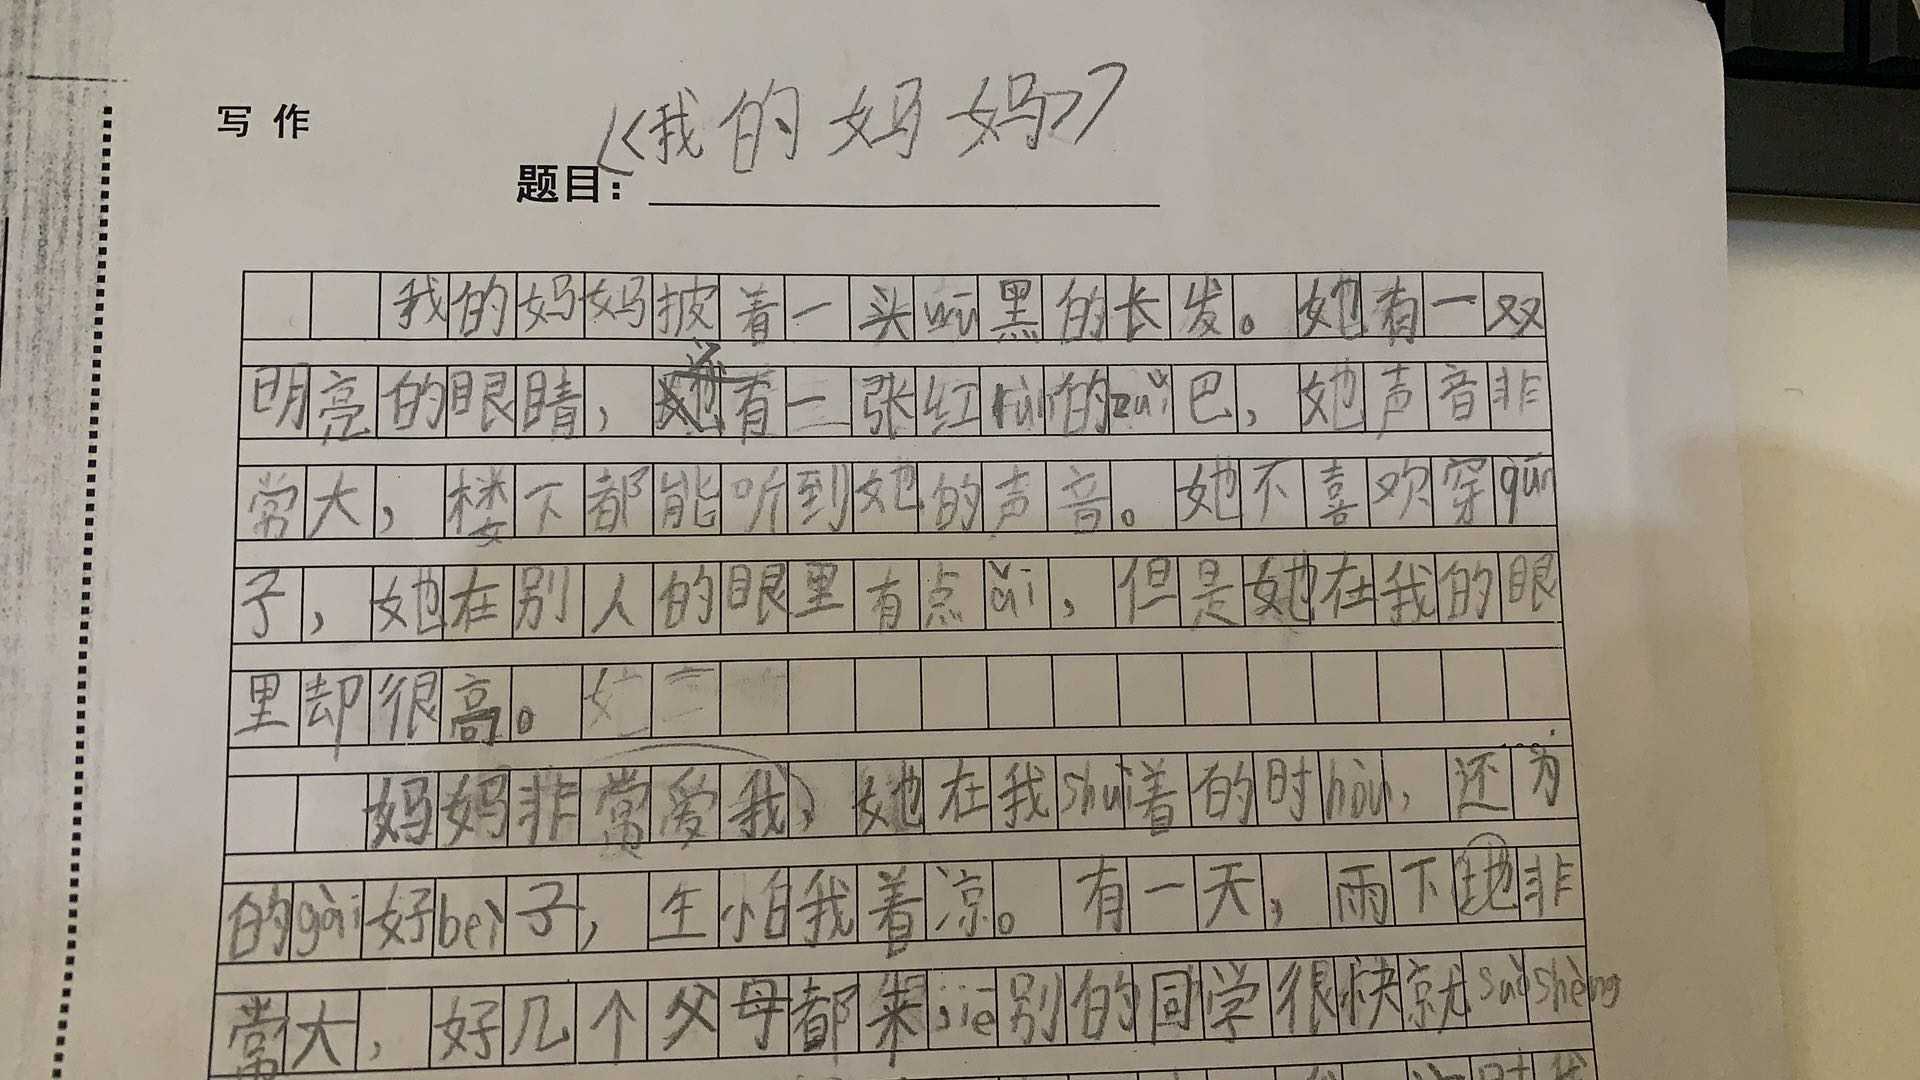 写 作
《我的妈妈》
题目：
我的妈妈披着一头wū黑的长发。她有一双
明亮的眼睛，还有一张红rùn的zuǐ巴，她声音非
常大，楼下都能听到她的声音。她不喜欢穿qún
子，她在别人的眼里有点ǎi，但是她在我的眼
里却很高。
妈妈非常爱我，她在我shuì着的时hòu，还为
的gài好bèi子，生怕我着凉。有一天，雨下地非
常大，好几个父母都来jiē别的同学很快就shèng